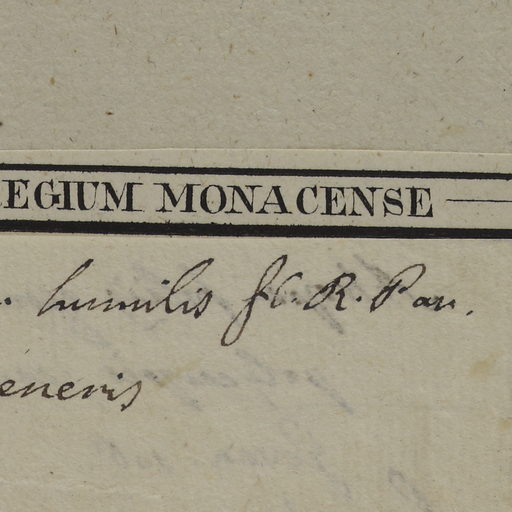 EGIUM MONACENSE
. humilis fl. R. Pav.
eneris